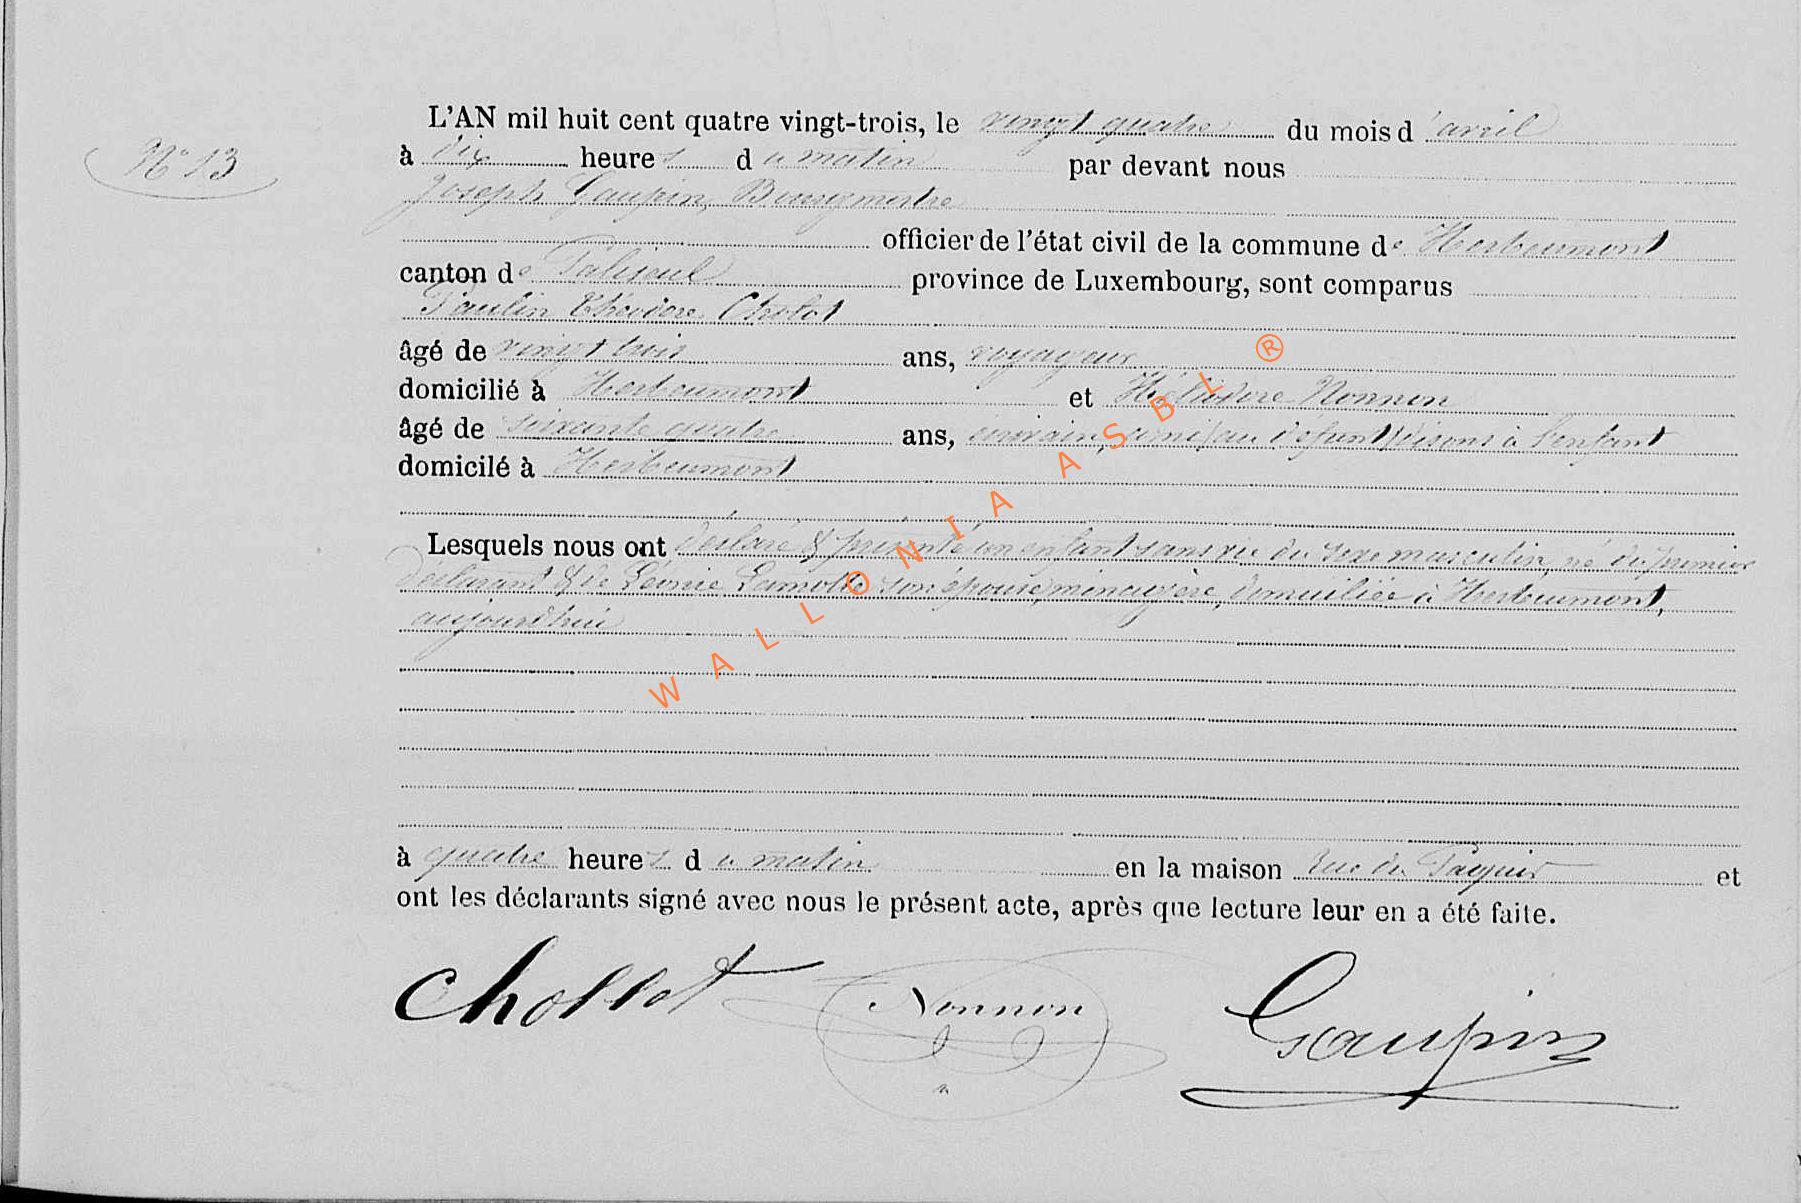 N° 13
L'AN mil huit cent quatre vingt-trois, le vingt quatre du mois d'avril
à dix heures du matin par devant nous
Joseph Gaupin, Bourgmestre
officier de l'état civil de la commune de Herbeumont
canton de Paliseul province de Luxembourg, sont comparus
Paulin Théodore Cholot
âgé de vingt trois ans, voyageur
domicilié à Herbeumont et Héliodore Nonnon
âgé de soixante quatre ans, ami (au défunt) disons à l'enfant
domicilé à Herbeumont
Lesquels nous ont déclaré & présenté un enfant sans vie du sexe masculin, né du premier
déclarant & de Léonie Lamotte son épouse, ménagère, domiciliée à Herbeumont,
aujourd'hui
à quatre heures du matin en la maison rue du Paquis et
ont les déclarants signé avec nous le présent acte, après que lecture leur en a été faite.
Chollot Nonnon Gaupin
WALLONIA ASBL ®